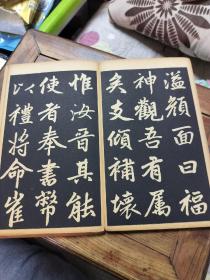 溢顔面曰福
神觀吾有属
矣支傾補壞
惟汝晉其能
使者奉書幣
以禮將命崔